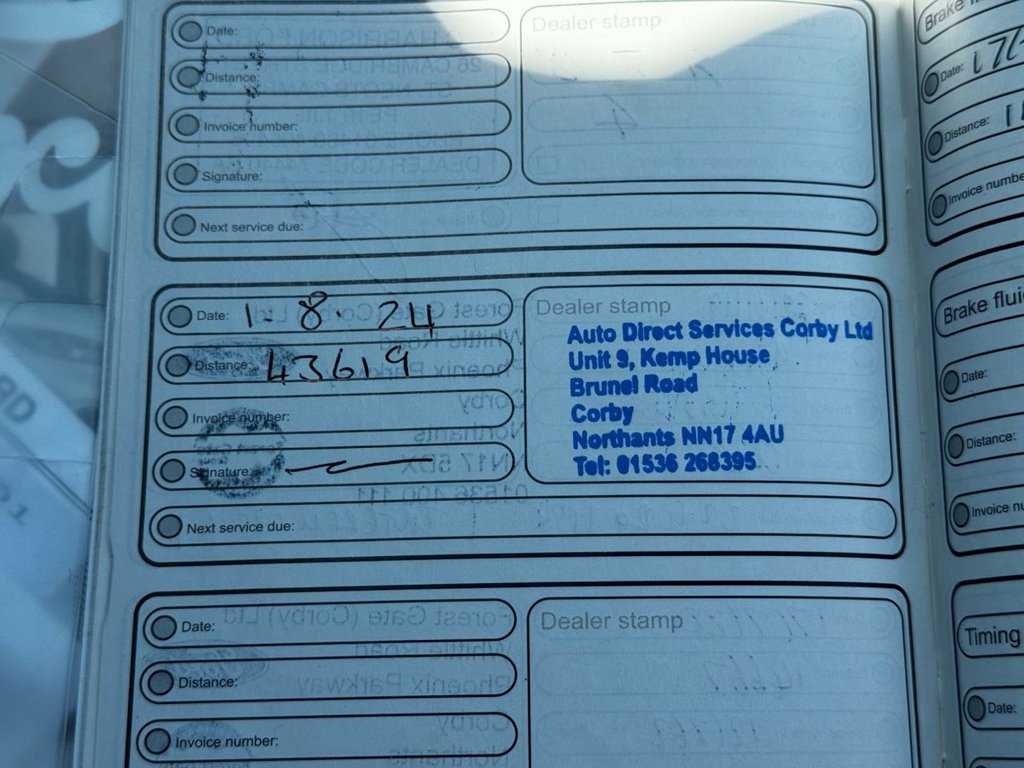 Date:
Distance:
Invoice number:
Signature:
Next service due:
Dealer stamp
Date: 1-8-24
Distance: 43619
Invoice number:
Signature:
Next service due:
Dealer stamp
Auto Direct Services Corby Ltd
Unit 9, Kemp House
Brunel Road
Corby
Northants NN17 4AU
Tel: 01536 268395
Date:
Distance:
Invoice number:
Dealer stamp
Brake
Date:
Distance:
Invoice
Brake
Date:
Distance:
Invoice
Timing
Date: